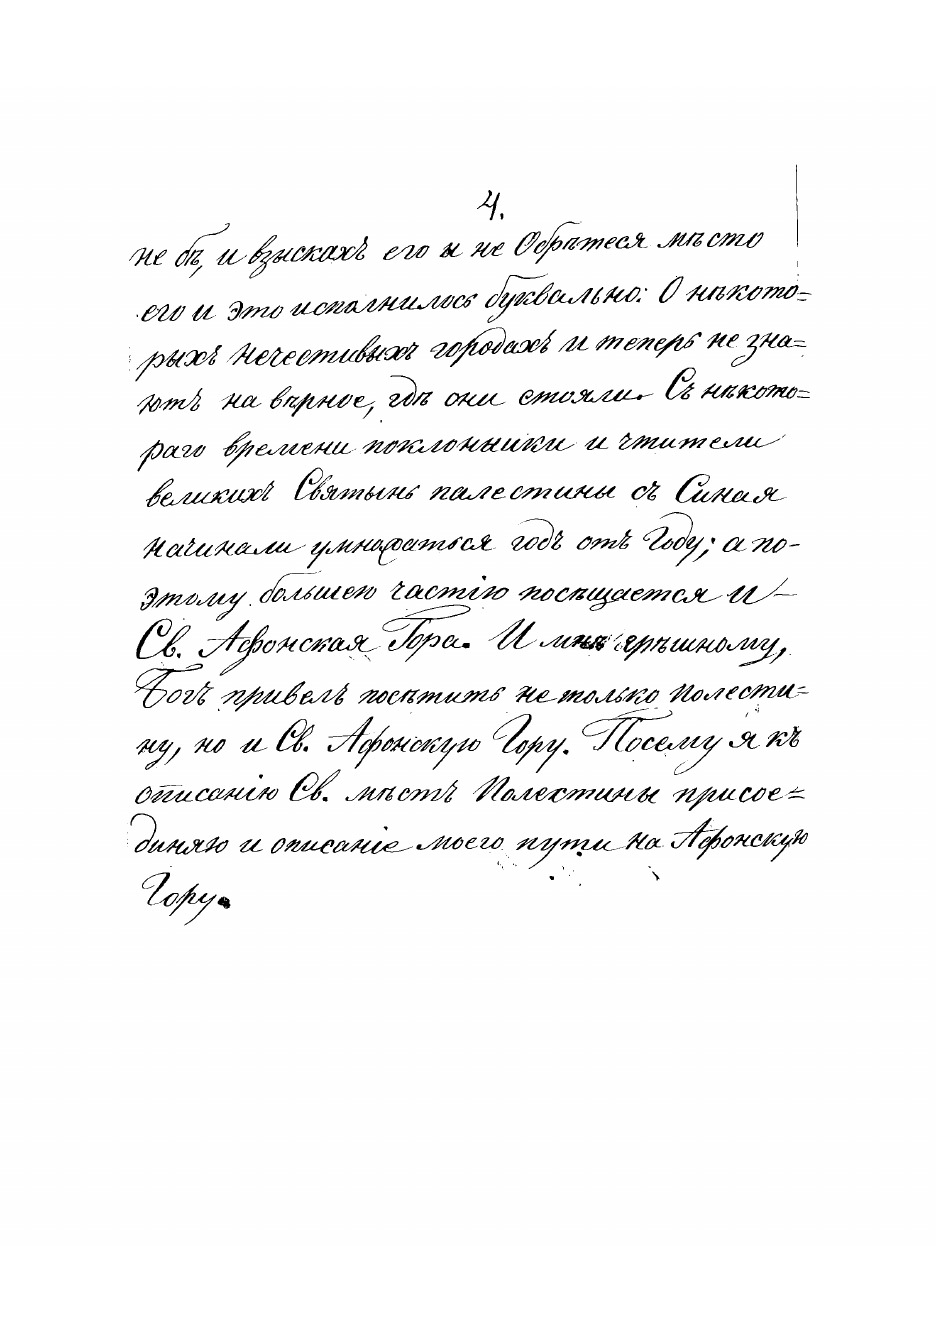 4.
не бѣ, и взыскахъ его и не Обрѣтеся мѣсто
его и это исполнилось буквально: О нѣкото=
рыхъ нечестивыхъ городахъ и теперь не зна=
ютъ на вѣрное, гдѣ они стояли. Съ нѣкото=
раго времени поклонники и чтители
великихъ Святынь палестины съ Синая
начинали умножаться годъ отъ Году; а по-
этому большею частію посѣщается и —
Св. Афонская Гора. И мнѣ грѣшному,
Богъ привелъ посѣтить не только Полести=
ну, но и Св. Афонскую Гору. Посему я къ
описанію Св. мѣстъ Полестины присое=
диняю и описаніе моего пути на Афонскую
Гору.